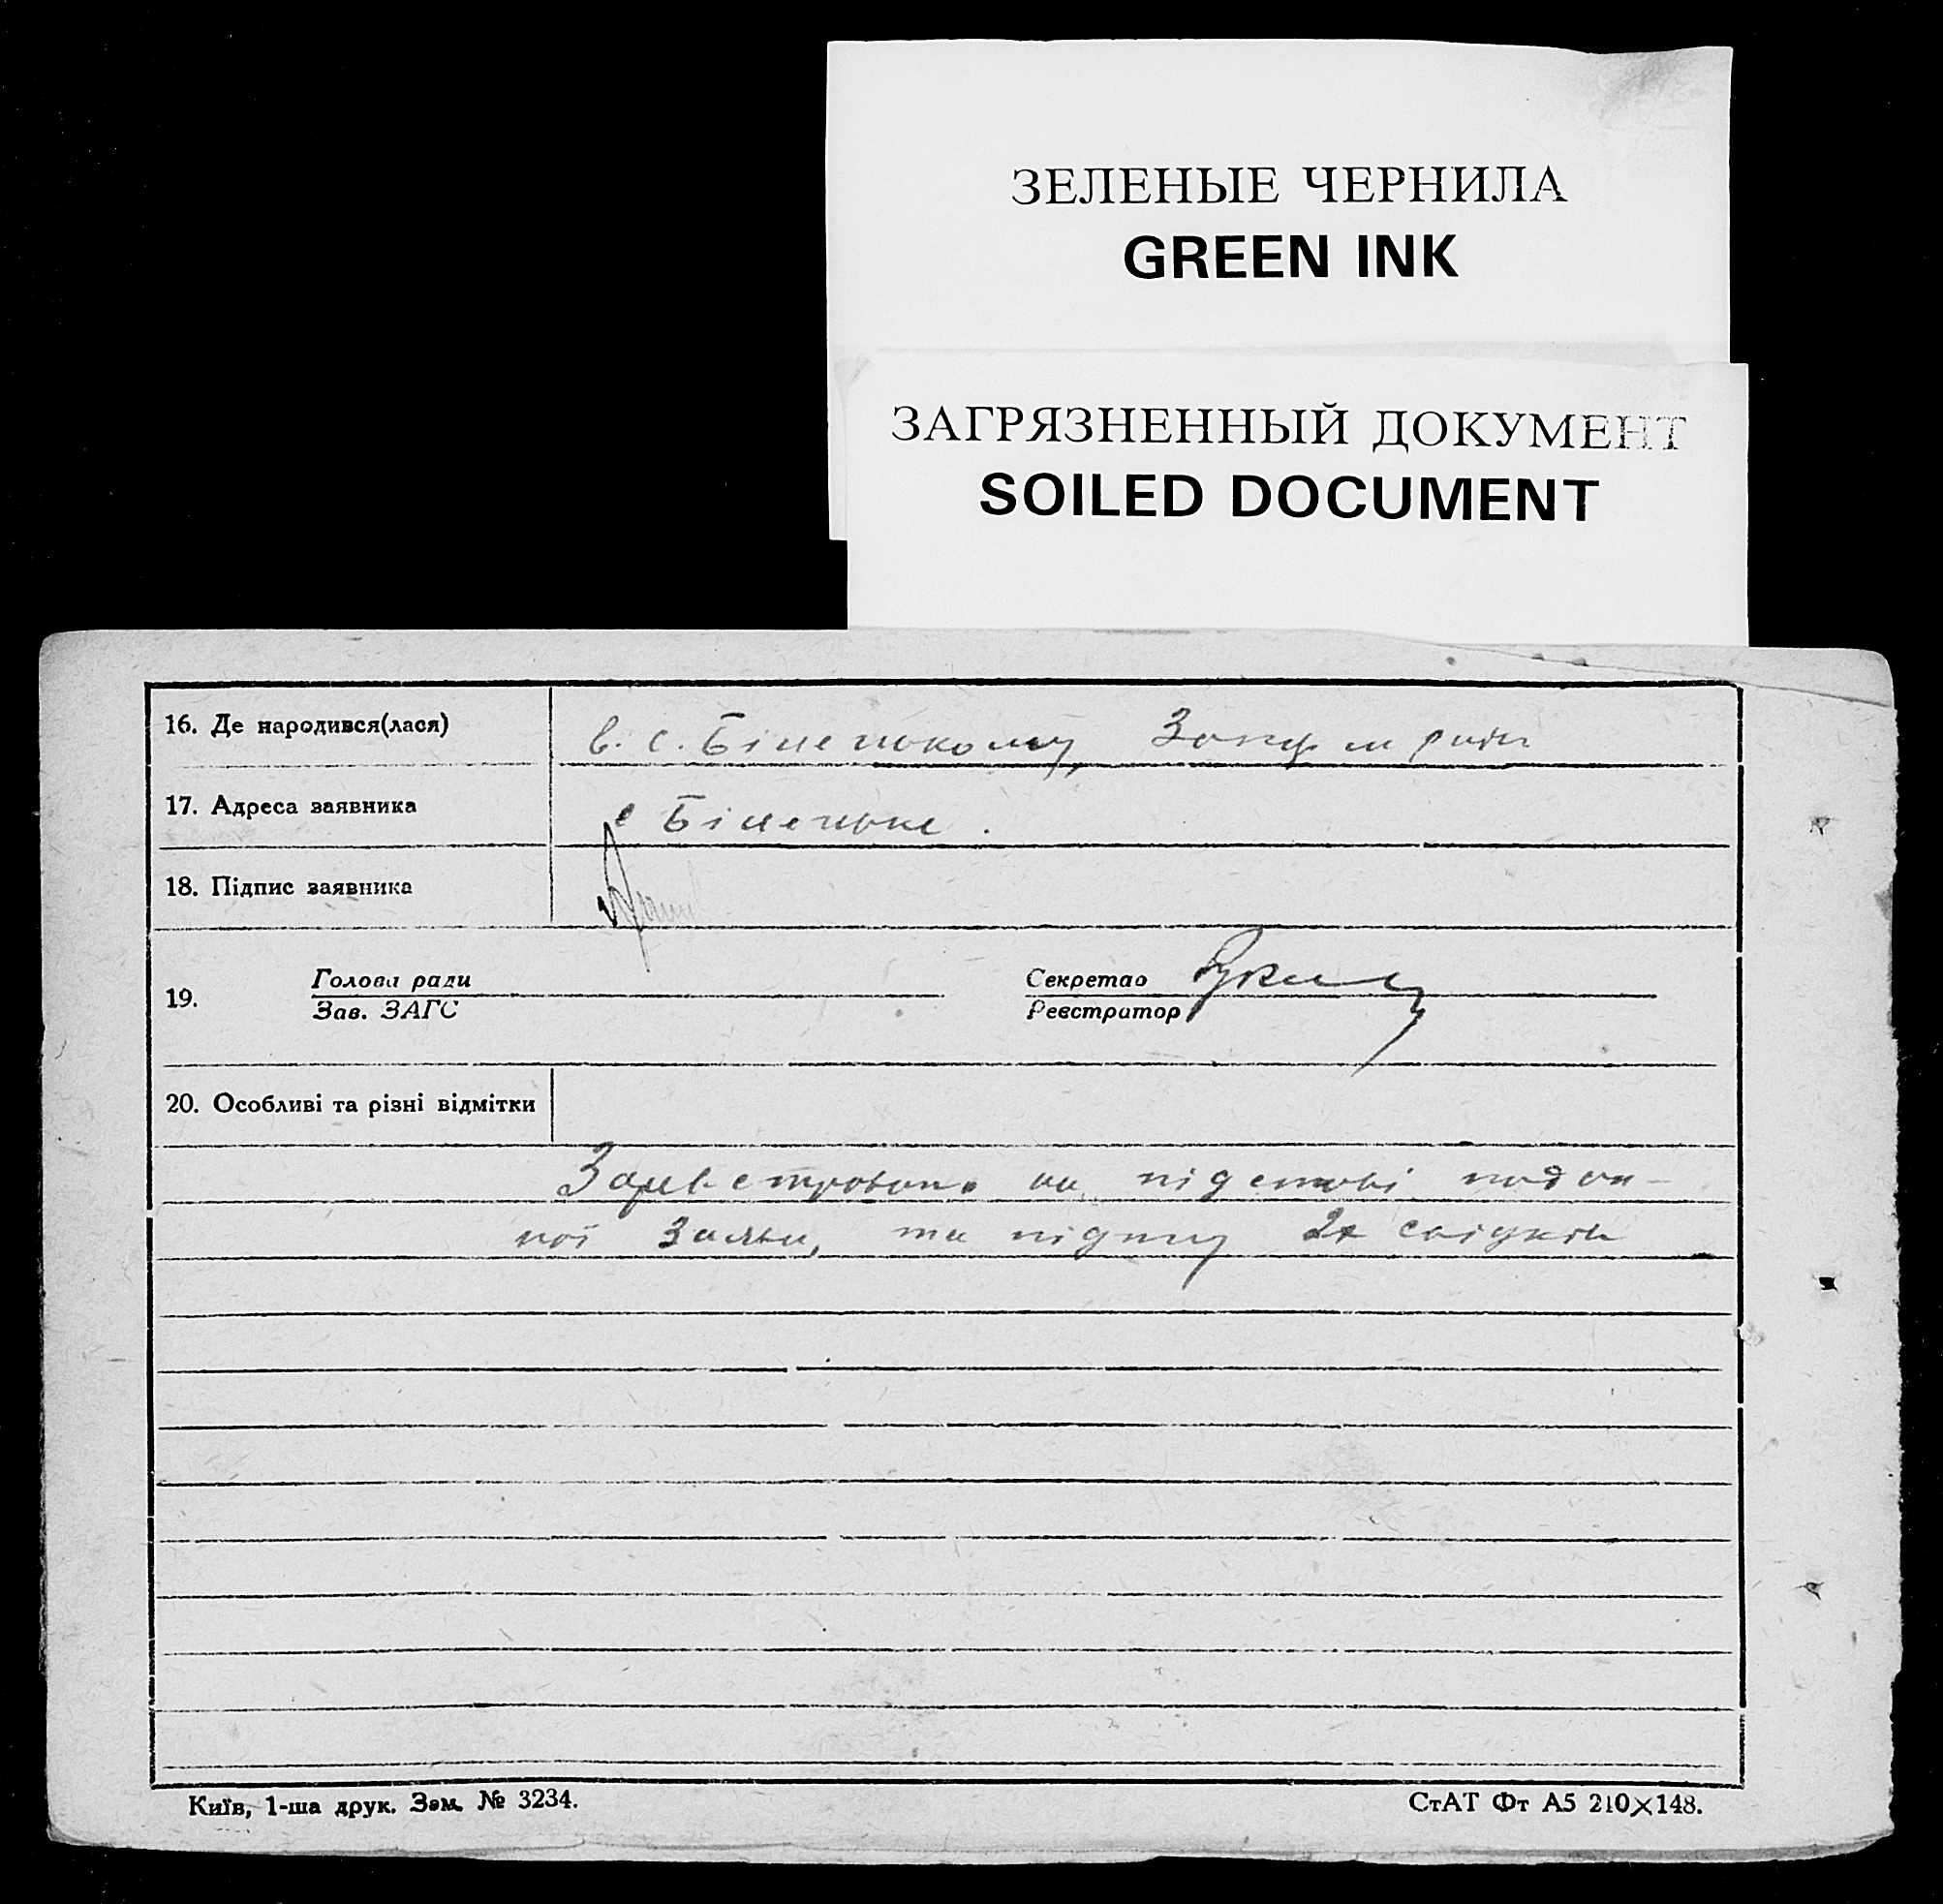 ЗЕЛЕНЫЕ ЧЕРНИЛА
GREEN INK
ЗАГРЯЗНЕННЫЙ ДОКУМЕНТ
SOILED DOCUMENT
16. Де народився(лася) в. с. Біленькому, Запор. м
17. Адреса заявника с Біленьке.
18. Підпис заявника
19. Голова ради Секретар
Зав. ЗАГС Реєстратор
20. Особливі та різні відмітки
Зареєстровано на підставі подан-
ної заяви, та підпису 2х свідків
Київ, 1-ша друк. Зам. № 3234. СтАТ Фт А5 210×148.